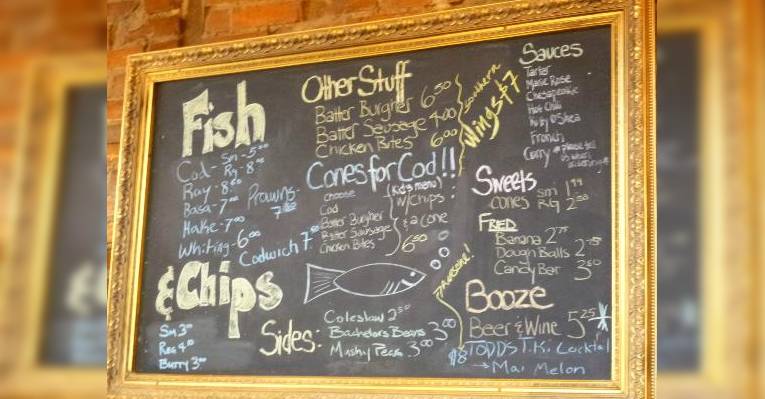 Fish
Cod - Sm - 5.00
Rg - 8.00
Ray - 8.60
Basa - 7.00
Hake - 7.00
Whiting - 6.00
Prawns -
7.00
Codwich 7.00
& Chips
Sm 3.00
Reg 4.00
Butty 3.00
Other Stuff
Batter Burgher 6.50
Batter Sausage 4.00
Chicken Bites 6.00
Southern
Wings $7
Cones for Cod!!
Choose
Cod
Batter Burgher
Batter Sausage
Chicken Bites
(Kids menu)
w/ Chips
& a Cone
6.00
Awesome!
Sides:
Coleslaw 2.50
Bachelors Beans 3.00
Mushy Peas 3.00
Sauces
Tartar
Marie Rose
Chesapeake
Hot Chili
Kitty O'Shea
French
Curry * please tell
us when
ordering!!
Sweets
Cones sm 1.99
Rg 2.50
Fried
Banana 2.75
Dough Balls 2.75
Candy Bar 3.50
Booze
Beer & Wine 5.25
$8 TODDS T.Ki Cocktail
→ Mai Melon